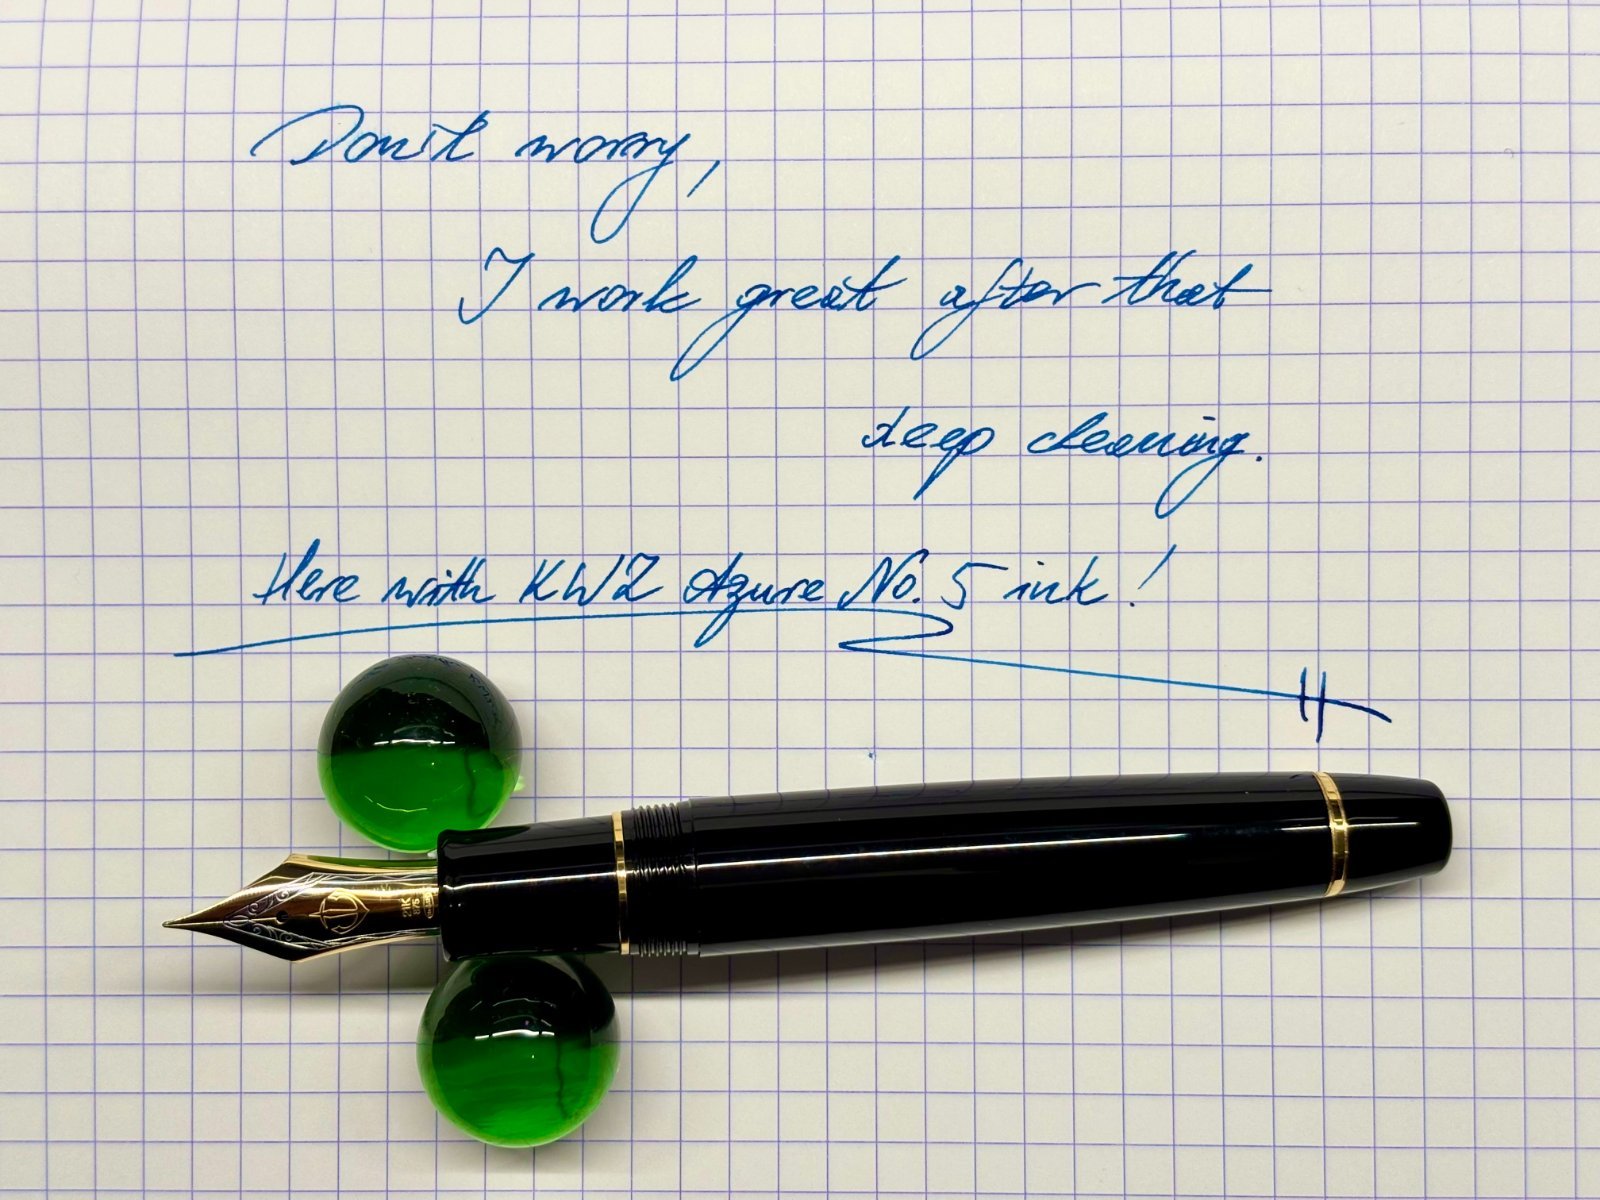 Don't worry,
I work great after that
deep cleaning.
Here with KWZ Azure No. 5 ink!
21K
875